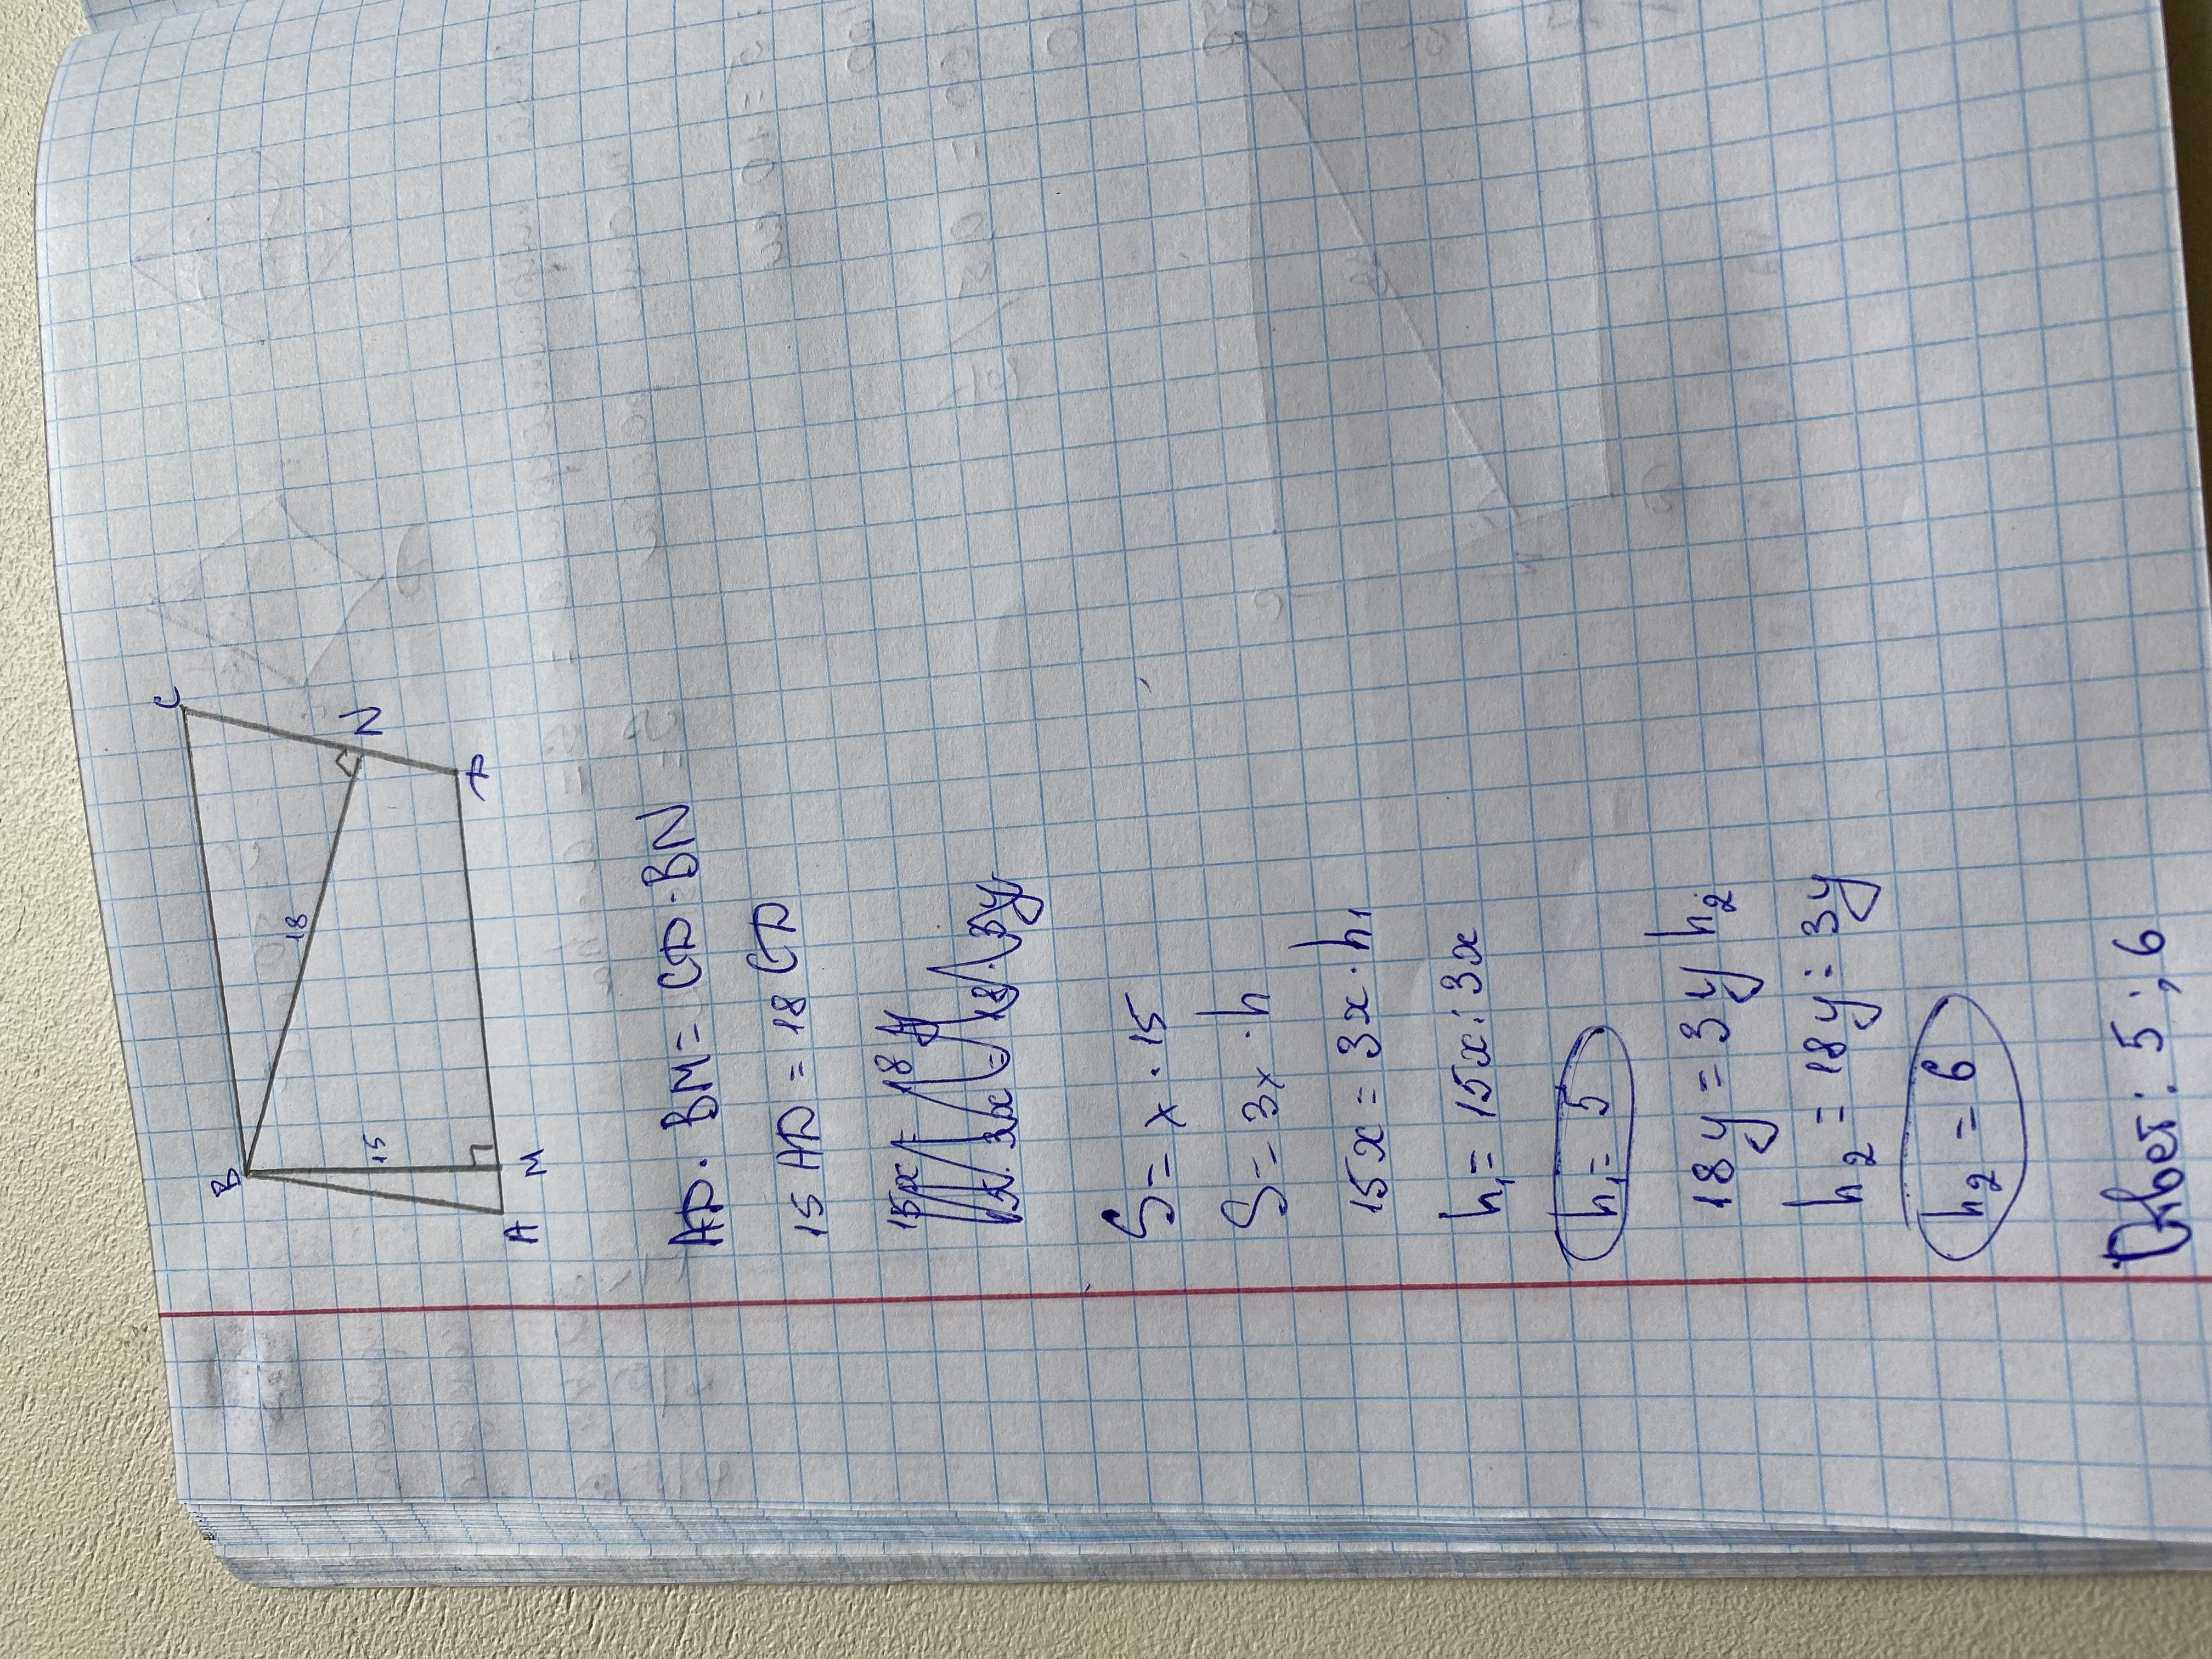 B
C
15
18
N
A
M
D
AD · BM = CD · BN
15 AD = 18 CD
S = x · 15
S = 3x · h
15x = 3x · h₁
h₁ = 15x : 3x
h₁ = 5
18y = 3y h₂
h₂ = 18y : 3y
h₂ = 6
Ответ: 5; 6